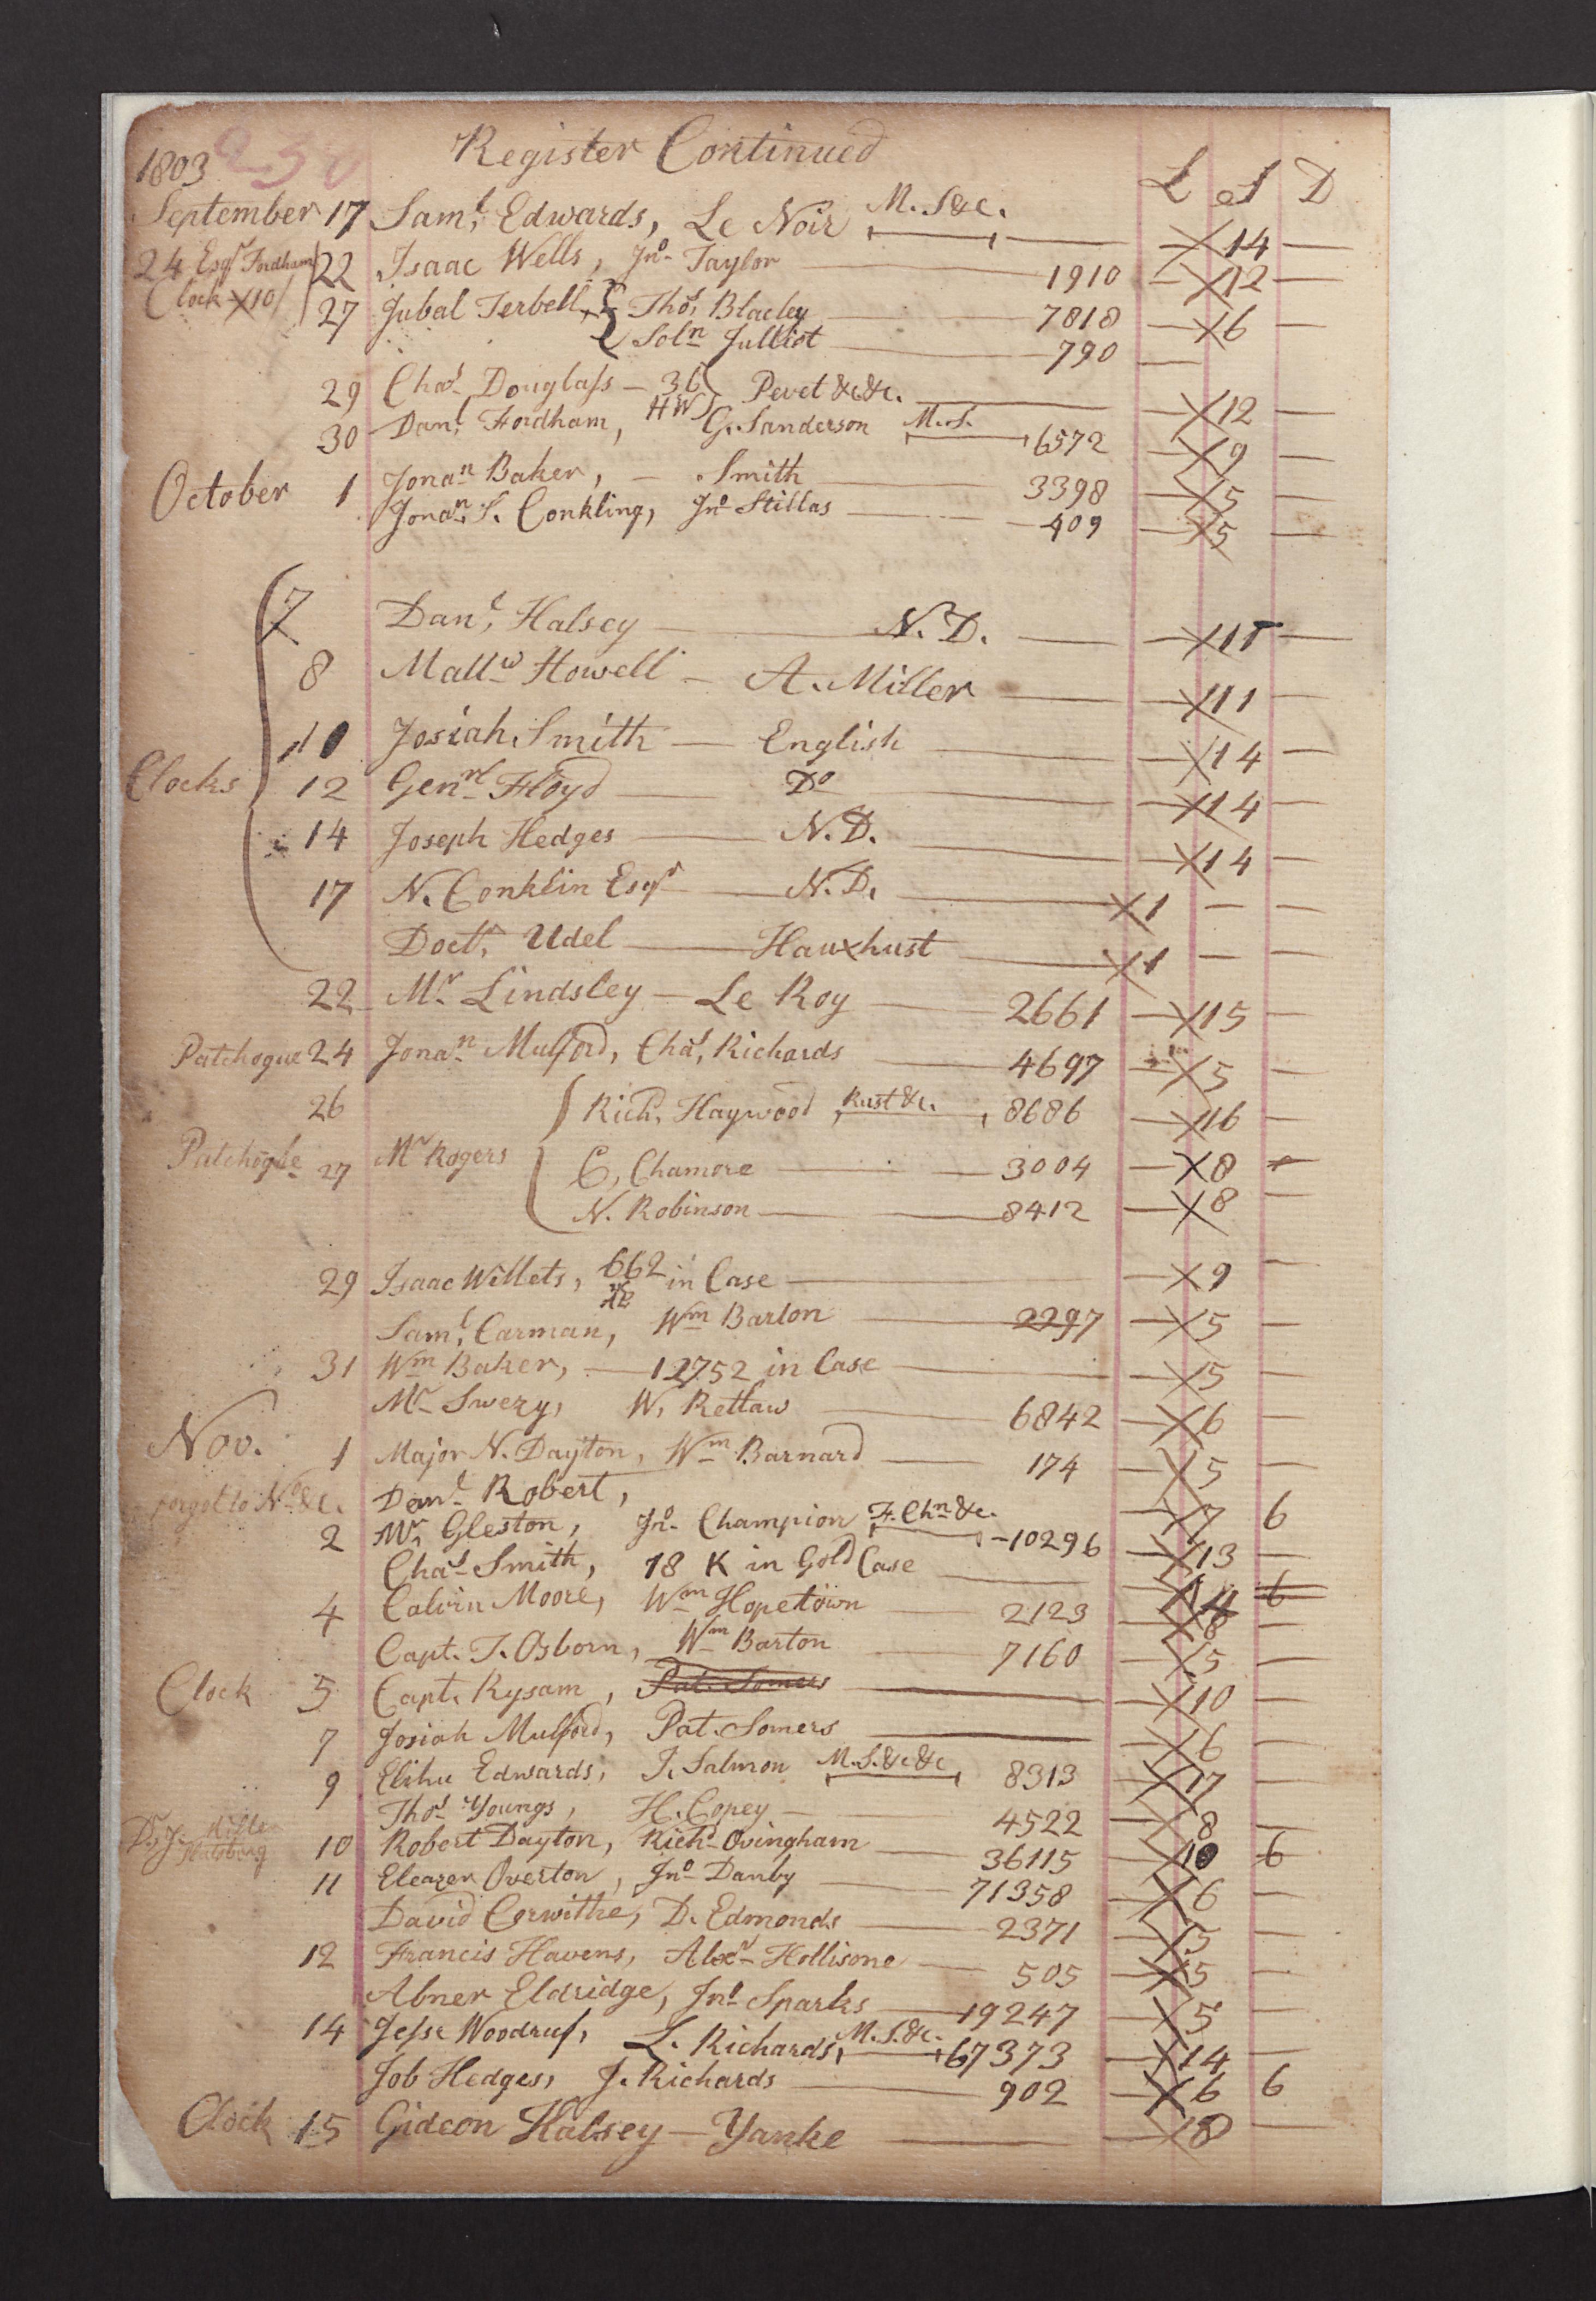 1803 Register Continued
L S D
September 17 Saml. Edwards, Le Noir M. S&c. — X 14 —
24 Esqr Fordham
Clock X10/
22 Isaac Wells, Jno. Taylor — 1910 — X 12 —
27 Jubal Terbell, { Thos. Blacley — 7818 — X 6 —
Soln Julliot — 790 —
29 Chas. Douglass — 36 HW } Pevet &c&c. — X 12 —
30 Danl. Fordham, G. Sanderson M. S. 6572 — X 9 —
October 1 Jonan Baker, — Smith — 3398 — X 5 —
Jonan. S. Conkling, Jno Stillas — 409 — X 5 —
7 Danl. Halsey — N. D. — X 15 —
8 Mattw Howell — A. Miller — X 11 —
10 Josiah Smith — English — X 14 —
Clocks 12 Genrl Floyd — Do — X 14 —
14 Joseph Hedges — N. D. — X 14 —
17 N. Conklin Esqr — N. D. — X 1 — —
Doctr. Udel — Hauxhust — X 1 — —
22 Mr Lindsley — Le Roy — 2661 — X 15 —
Patchogue 24 Jonan Mulford, Chas. Richards — 4697 — X 5 —
26 { Richd. Haywood, Rust &c. 8686 — X 16 —
Patchogue 27 Mr Rogers C. Chamore — 3004 — X 8 —
N. Robinson — 8412 — X 8 —
29 Isaac Willets, 662 in Case — X 9 —
Saml. Carman, Wm Barton — 2297 — X 5 —
31 Wm Baker, — 12752 in Case — X 5 —
Mr Swezy, W. Rettaw — 6842 — X 6 —
Nov. 1 Major N. Dayton, Wm Barnard — 174 — X 5 —
forgot to No &c. Danl. Robert, — X 7 6
2 Mr. Gleston, Jno. Champion F. Chn &c. — 10296 — X 13 —
Chas Smith, 18 K in Gold Case — X 14 6
4 Calvin Moore, Wm Hopetown — 2123 — X 8 —
Capt. J. Osborn, Wm Barton — 7160 — X 5 —
Clock 5 Capt. Rysam, Pat. Somers — X 10 —
7 Josiah Mulford, Pat. Somers — X 6 —
9 Elihu Edwards, J. Salmon M. S. &c &c 8313 — X 17 —
Thos Youngs, H. Copey — 4522 — X 8 —
10 Robert Dayton, Richd Ovingham — 36115 — X 10 6
11 Eleazer Overton, Jno Danby — 71358 — X 6 —
David Corwithe, D. Edmonds — 2371 — X 5 —
12 Francis Havens, Alexr Hollisone — 505 — X 5 —
Abner Eldridge, Jno Sparks — 19247 — X 5 —
14 Jesse Woodruf, L. Richards, M. S. &c. 67373 — X 14 —
Job Hedges, J. Richards — 902 — X 6 6
Clock 15 Gideon Halsey — Yanke — X 18 —